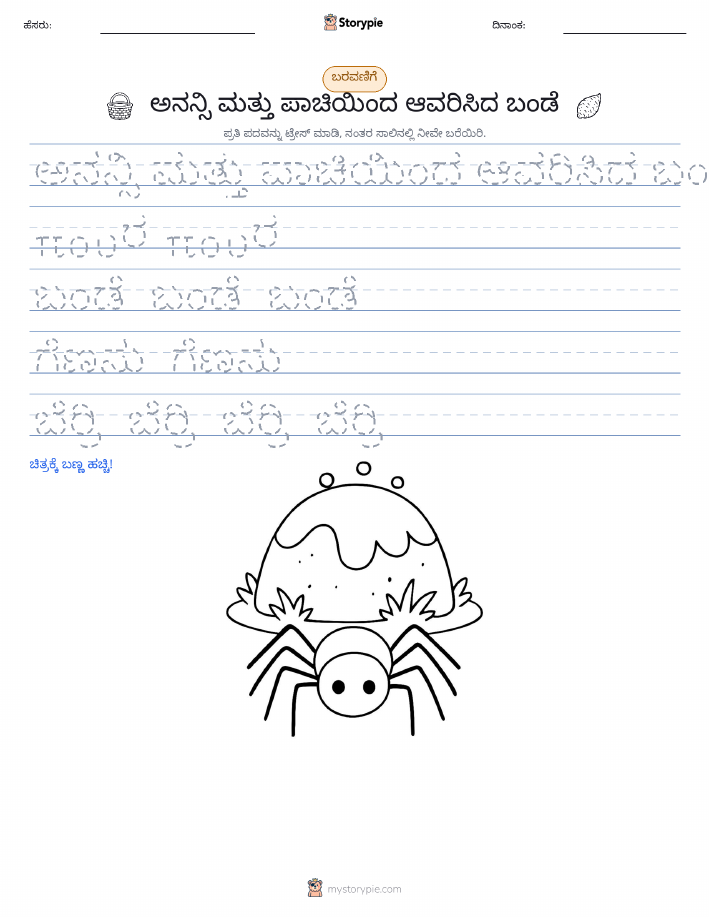 ಹೆಸರು:
Storypie
ದಿನಾಂಕ:
ಬರವಣಿಗೆ
ಅನನ್ಸಿ ಮತ್ತು ಪಾಚಿಯಿಂದ ಆವರಿಸಿದ ಬಂಡೆ
ಪ್ರತಿ ಪದವನ್ನು ಟ್ರೇಸ್ ಮಾಡಿ, ನಂತರ ಸಾಲಿನಲ್ಲಿ ನೀವೇ ಬರೆಯಿರಿ.
ಅನನ್ಸಿ ಮತ್ತು ಪಾಚಿಯಿಂದ ಆವರಿಸಿದ ಬಂ
ಬಂಡೆ ಬಂಡೆ ಬಂಡೆ
ಗೆಣಸು ಗೆಣಸು
ಬೆರ್ರಿ ಬೆರ್ರಿ ಬೆರ್ರಿ ಬೆರ್ರಿ
ಚಿತ್ರಕ್ಕೆ ಬಣ್ಣ ಹಚ್ಚಿ!
mystorypie.com